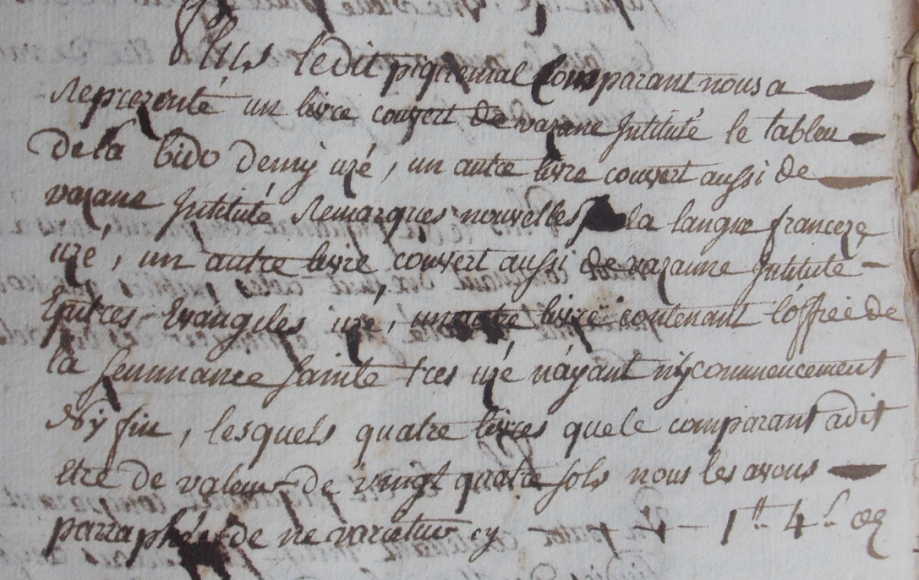 Plus ledit piquemal Comparant nous a
Reprezenté un livre couvert de vazane Jntitulé le tableu
De la bido Demy uzé, un autre livre couvert aussi de
vazane Jntitulé Remarques nouvelles la langue franceze
uzé, un autre livre couvert aussi de vazanne Jntitulé
Epitres Evangiles uzé, un autre livre contenant l'office de
la semmance sainte tres uzé n'ayant ny commencement
Ny fin, lesquels quatre livres que le comparant a dit
Etre de valeur de vingt quatre sols nous les avons
parraphés de ne varietur cy 1 4